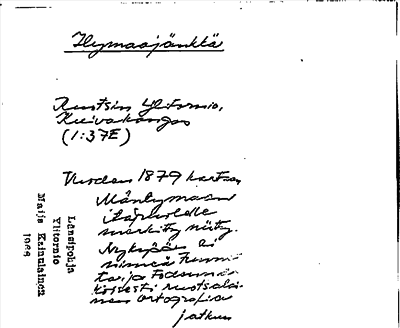 Hymaajänkkä
Ruotsin Ylitornio,
Kuivakangas
(1:37E)
Vuoden 1879 kartan
Mäntymaan
itäpuolelle
merkitty niitty.
Nykyään ei
nimeä tunne-
ta ja
ruotsalai-
nen ortografia
jatkuu
Länsipohja
Ylitornio
Maija Kainulainen
1966